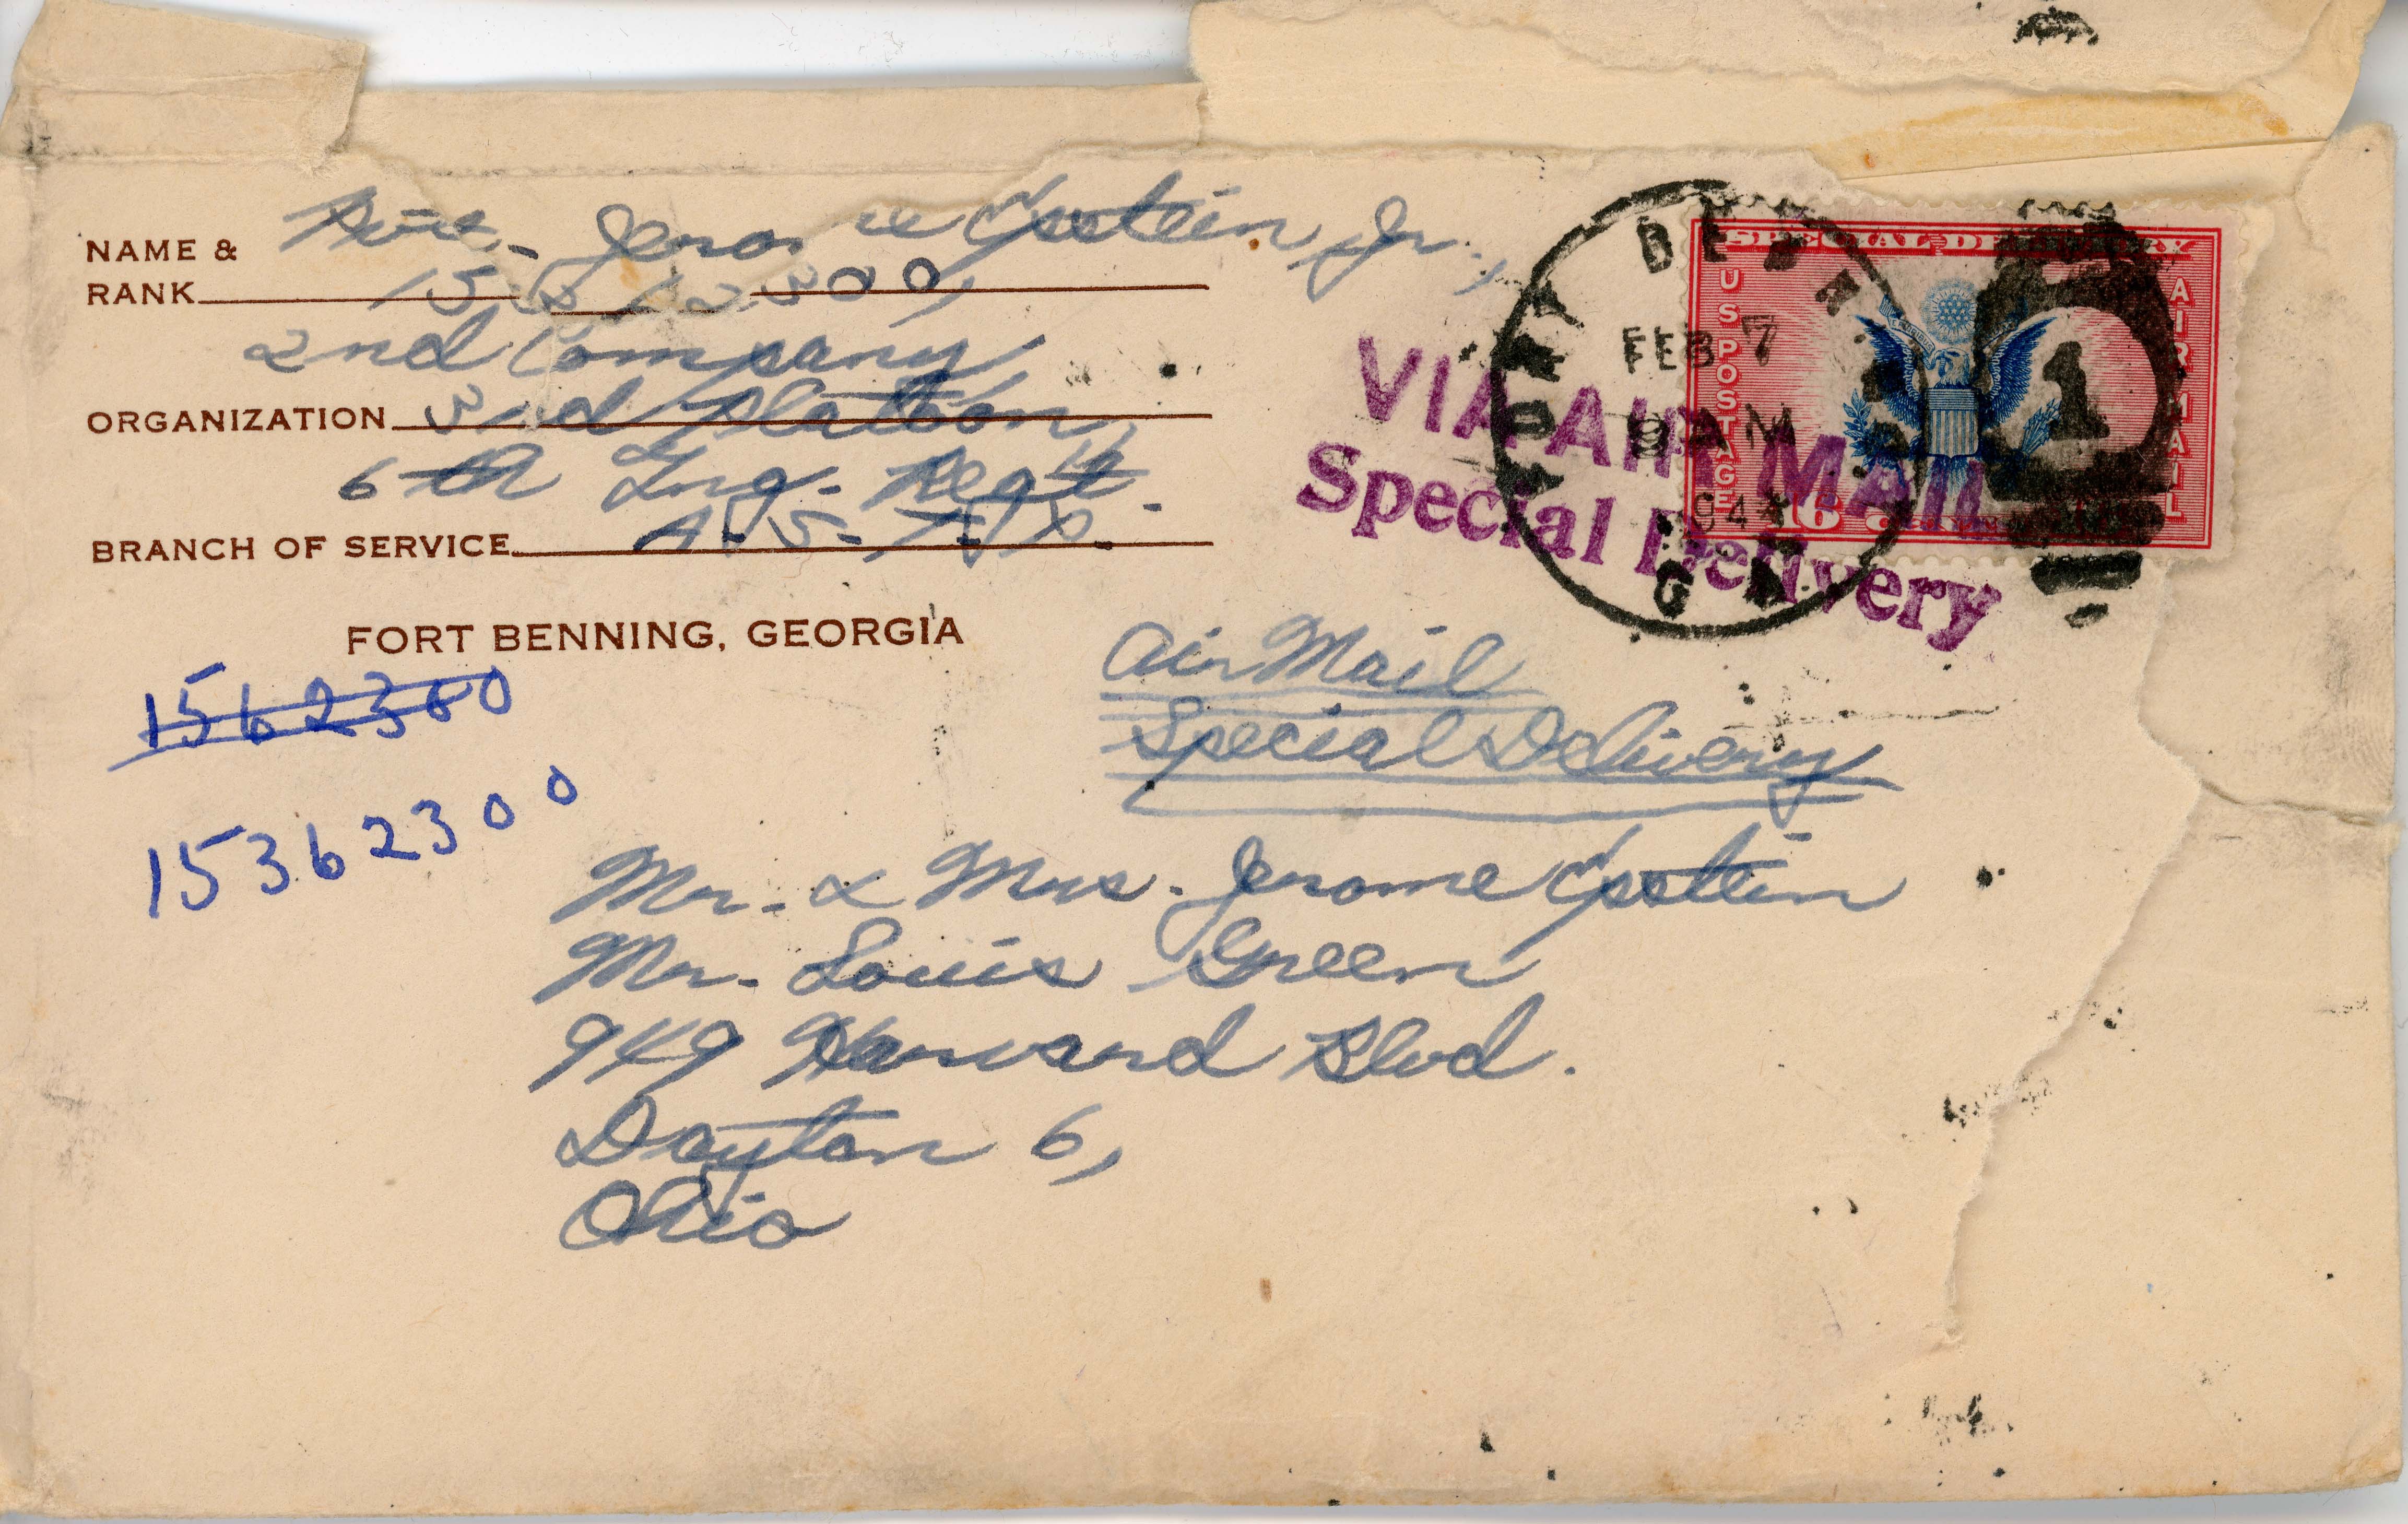 NAME &
RANK
Pvt. Jerome Epstein Jr.,
15362300,
2nd Company
ORGANIZATION 3rd Platoon,
6th Trng. Regt.
BRANCH OF SERVICE A.S.T.P.
FORT BENNING, GEORGIA
FORT BENN
GA
FEB 7
9 AM
194
SPECIAL DELIVERY
US POSTAGE
AIR MAIL
16
1
VIA AIR MAIL
Special Delivery
Air Mail
Special Delivery
1562300
15362300
Mr. & Mrs. Jerome Epstein
Mr. Louis Green
949 Harvard Blvd.
Dayton 6,
Ohio